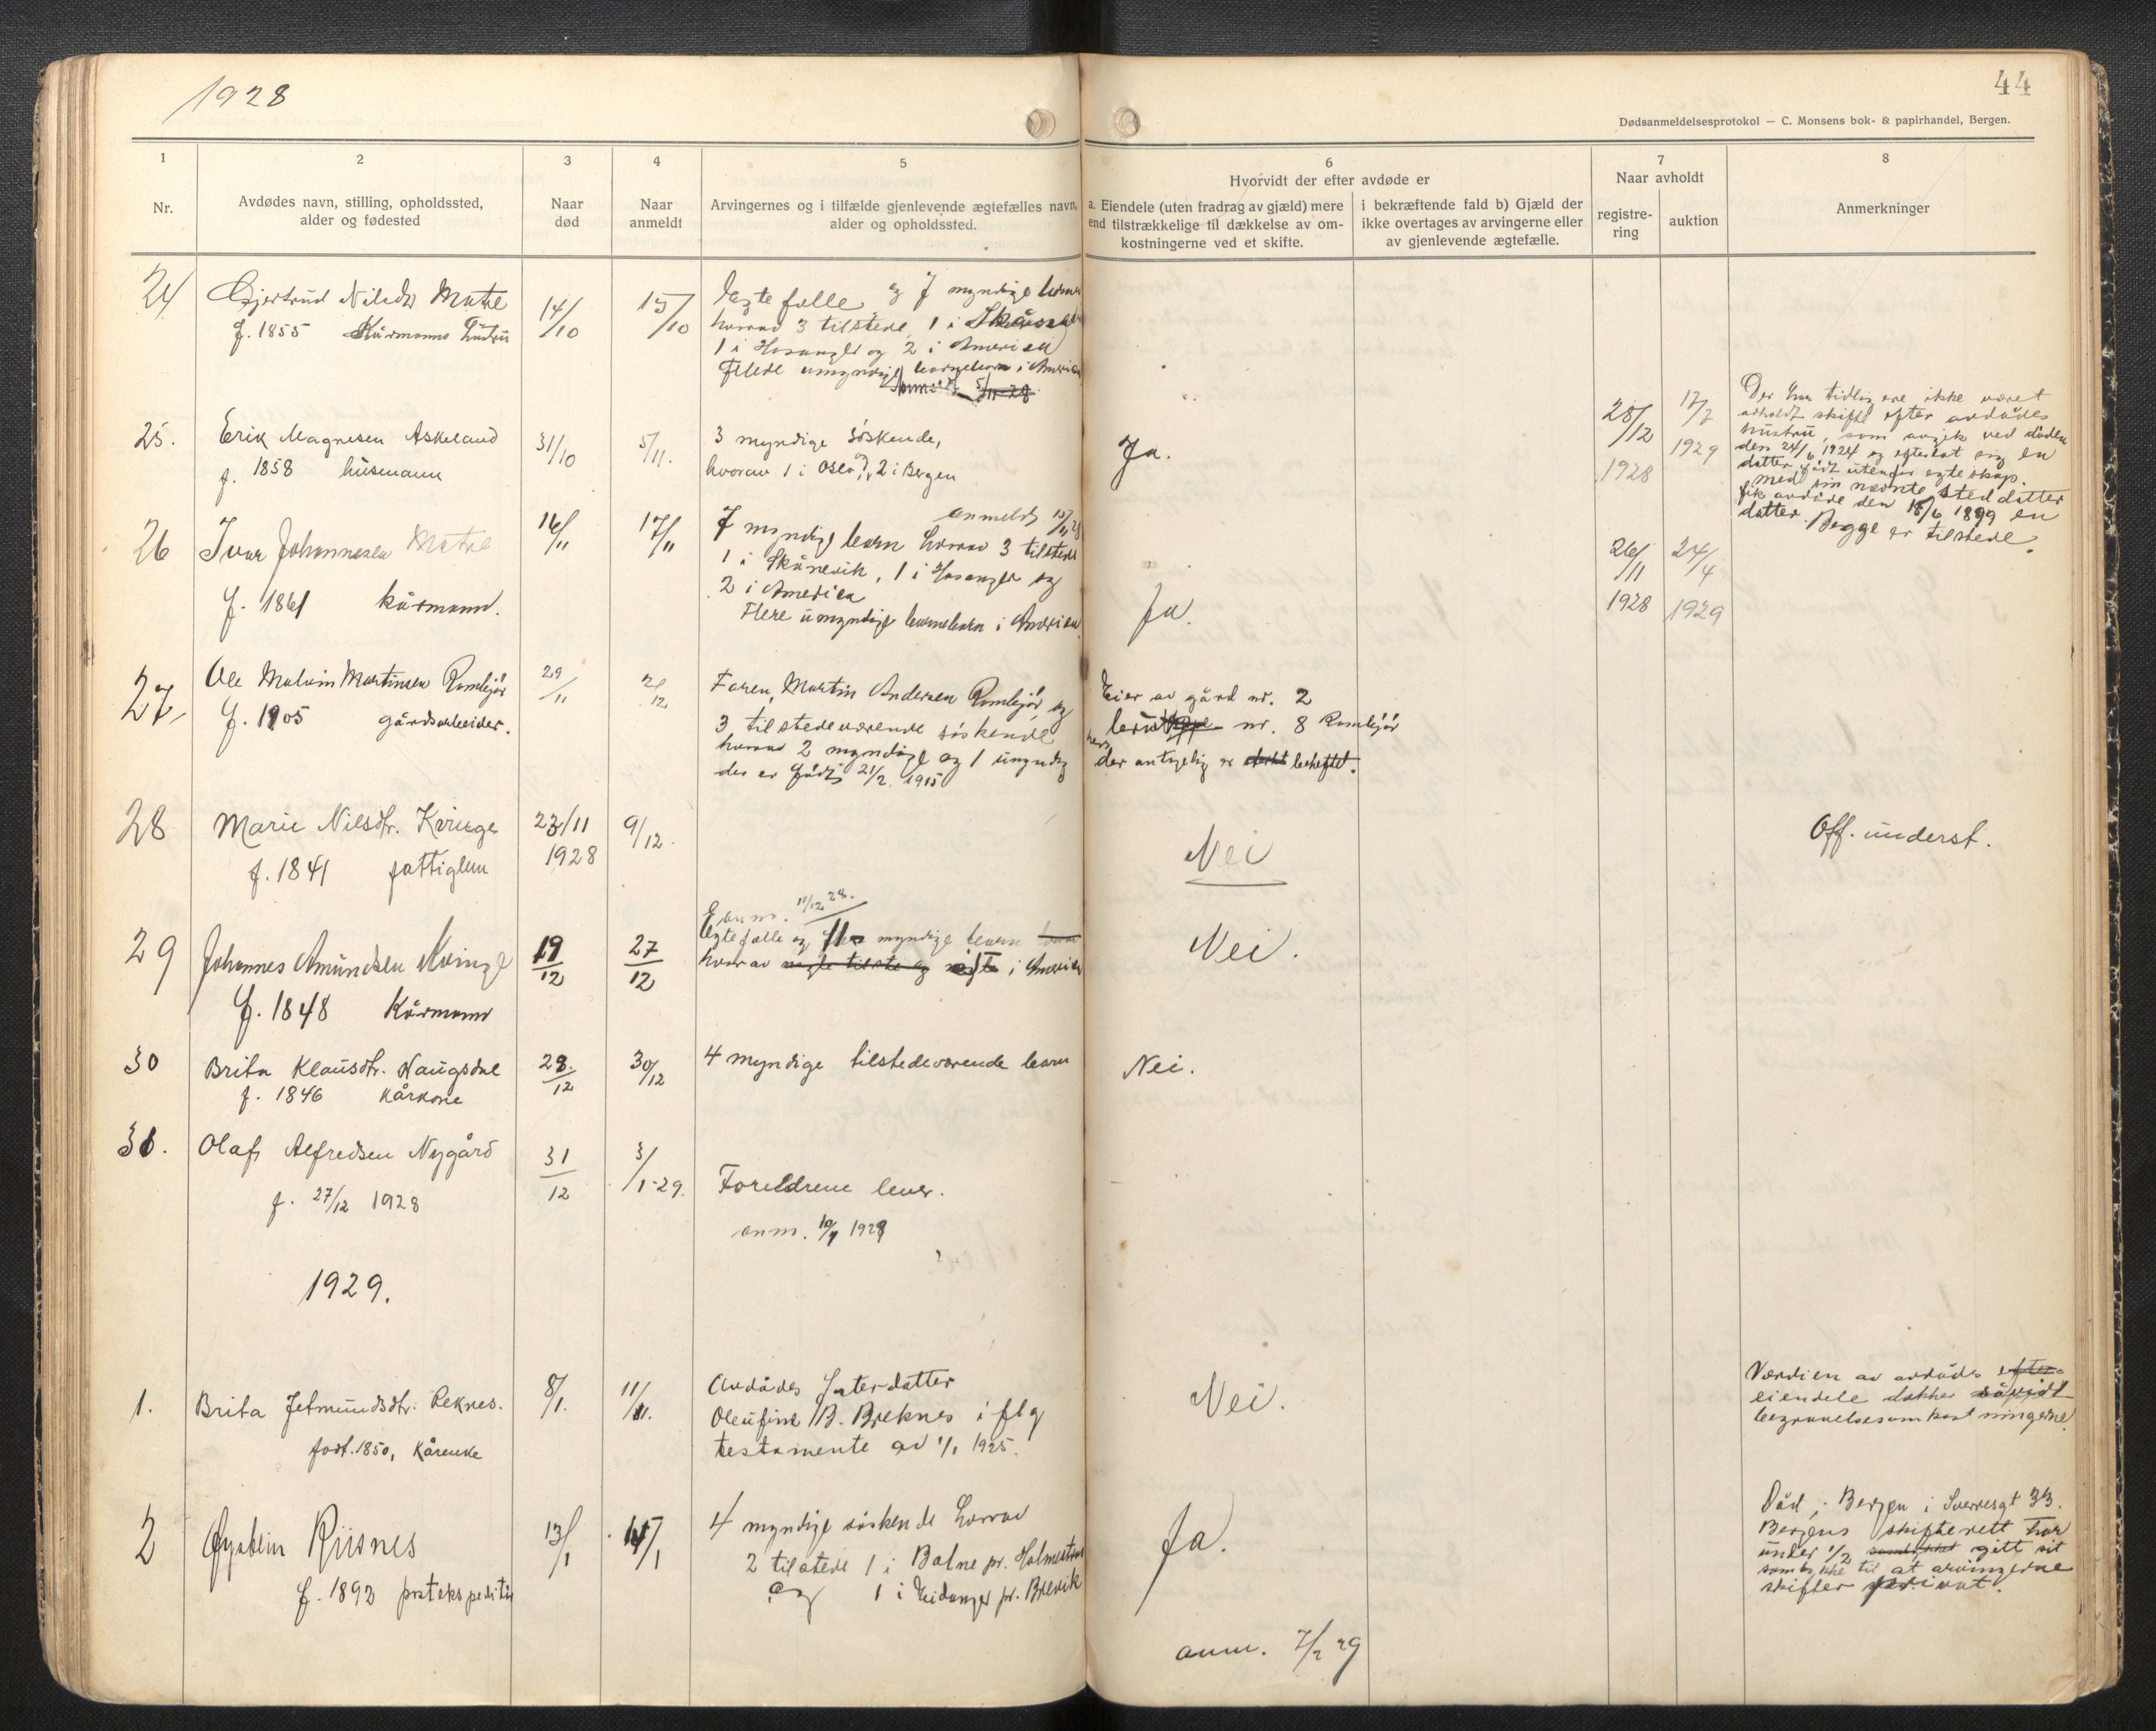 1928
44
Dødsanmeldelsesprotokol — C. Monsens bok- & papirhandel, Bergen.
1
2
3
4
5
6
7
8
Nr.
Avdødes navn, stilling, opholdssted,
alder og fødested
Naar
død
Naar
anmeldt
Arvingernes og i tilfælde gjenlevende ægtefælles navn,
alder og opholdssted.
Hvorvidt der efter avdøde er
a. Eiendele (uten fradrag av gjæld) mere
end tilstrækkelige til dækkelse av om-
kostningerne ved et skifte.
i bekræftende fald b) Gjæld der
ikke overtages av arvingerne eller
av gjenlevende ægtefælle.
Naar avholdt
registre-
ring
auktion
Anmerkninger
24
Gjertrud Nilsdtr Matre
f. 1855 Kårmanns hustru
14/10
15/10
Egtefælle og 7 myndige barn
hvorav 3 tilstede, 1 i Skånevik
1 i Hosanger og 2 i Amerika
Flere umyndige barnebarn i Amerika
5/11-28
25.
Erik Magnesen Askeland
f. 1858 husmann
31/10
5/11.
3 myndige søskende,
hvorav 1 i Oslo, 2 i Bergen
Ja.
28/12
1928
17/7
1929
Der har tidligere ikke været
avholdt skifte efter avdødes
hustru, som avgik ved døden
den 24/6 1924 og efterlot sig en
datter, født utenfor egteskap.
med sin nevnte steddatter
fik avdøde den 18/6 1899 en
datter. Begge er tilstede.
anmeldt 15/11 28
26
Ivar Johannesen Matre
f. 1861 kårmann.
16/11
17/11
7 myndige barn hvorav 3 tilstede
1 i Skånevik, 1 i Hosanger og
2 i Amerika
Flere umyndige barnebarn i Amerika.
Ja.
26/11
1928
24/4
1929
27
Ole Malvin Martinsen Romlejør
f. 1905 gårdsarbeider.
29/11
2/12
Faren, Martin Andersen Romlejør og
3 tilstedeværende søskende
hvorav 2 myndige og 1 umyndig
der er født 21/2 1915
Eier av gård nr. 2
nr. 8 Romlejør
der antagelig er beheftet.
28
Marie Nilsdtr. Kvinge
f. 1841 fattiglem
23/11
1928
9/12.
Nei
Off. underst.
anm. 11/12 28.
29
Johannes Amundsen Kvinge
f. 1848 Kårmann
19/12
27/12
Egtefælle og myndige barn
hvorav i Amerika
Nei.
30
Brita Klausdtr. Haugsdal
f. 1846 kårkone
28./12
30/12
4 myndige tilstedeværende barn
Nei.
31.
Olaf Alfredsen Nygård
f. 27/12 1928
31/12
3/1-29.
Foreldrene lever.
anm. 10/1 1929
1929.
1.
Brita Jetmundsdtr. Reknes.
født. 1850, Kårenke
8/1.
11/1.
Avdødes søsterdatter
Oleufine B. Breknes iflg
testamente av 1/1 1925.
Nei.
Værdien av avdødes
eiendele dækker såvidt
begravelsesomkostningerne.
2
Øystein Riisnes
f. 1892 postekspeditør
13/1
15/1
4 myndige søskende hvorav
2 tilstede 1 i Botne pr. Holmestrand
og 1 i Eidanger pr. Brevik
Ja.
Død i Bergen i Sverresgt 33.
Bergens skifterett har
under 1/2 gitt sit
samtykke til at arvingerne
skifter privat.
anm. 7/2 29